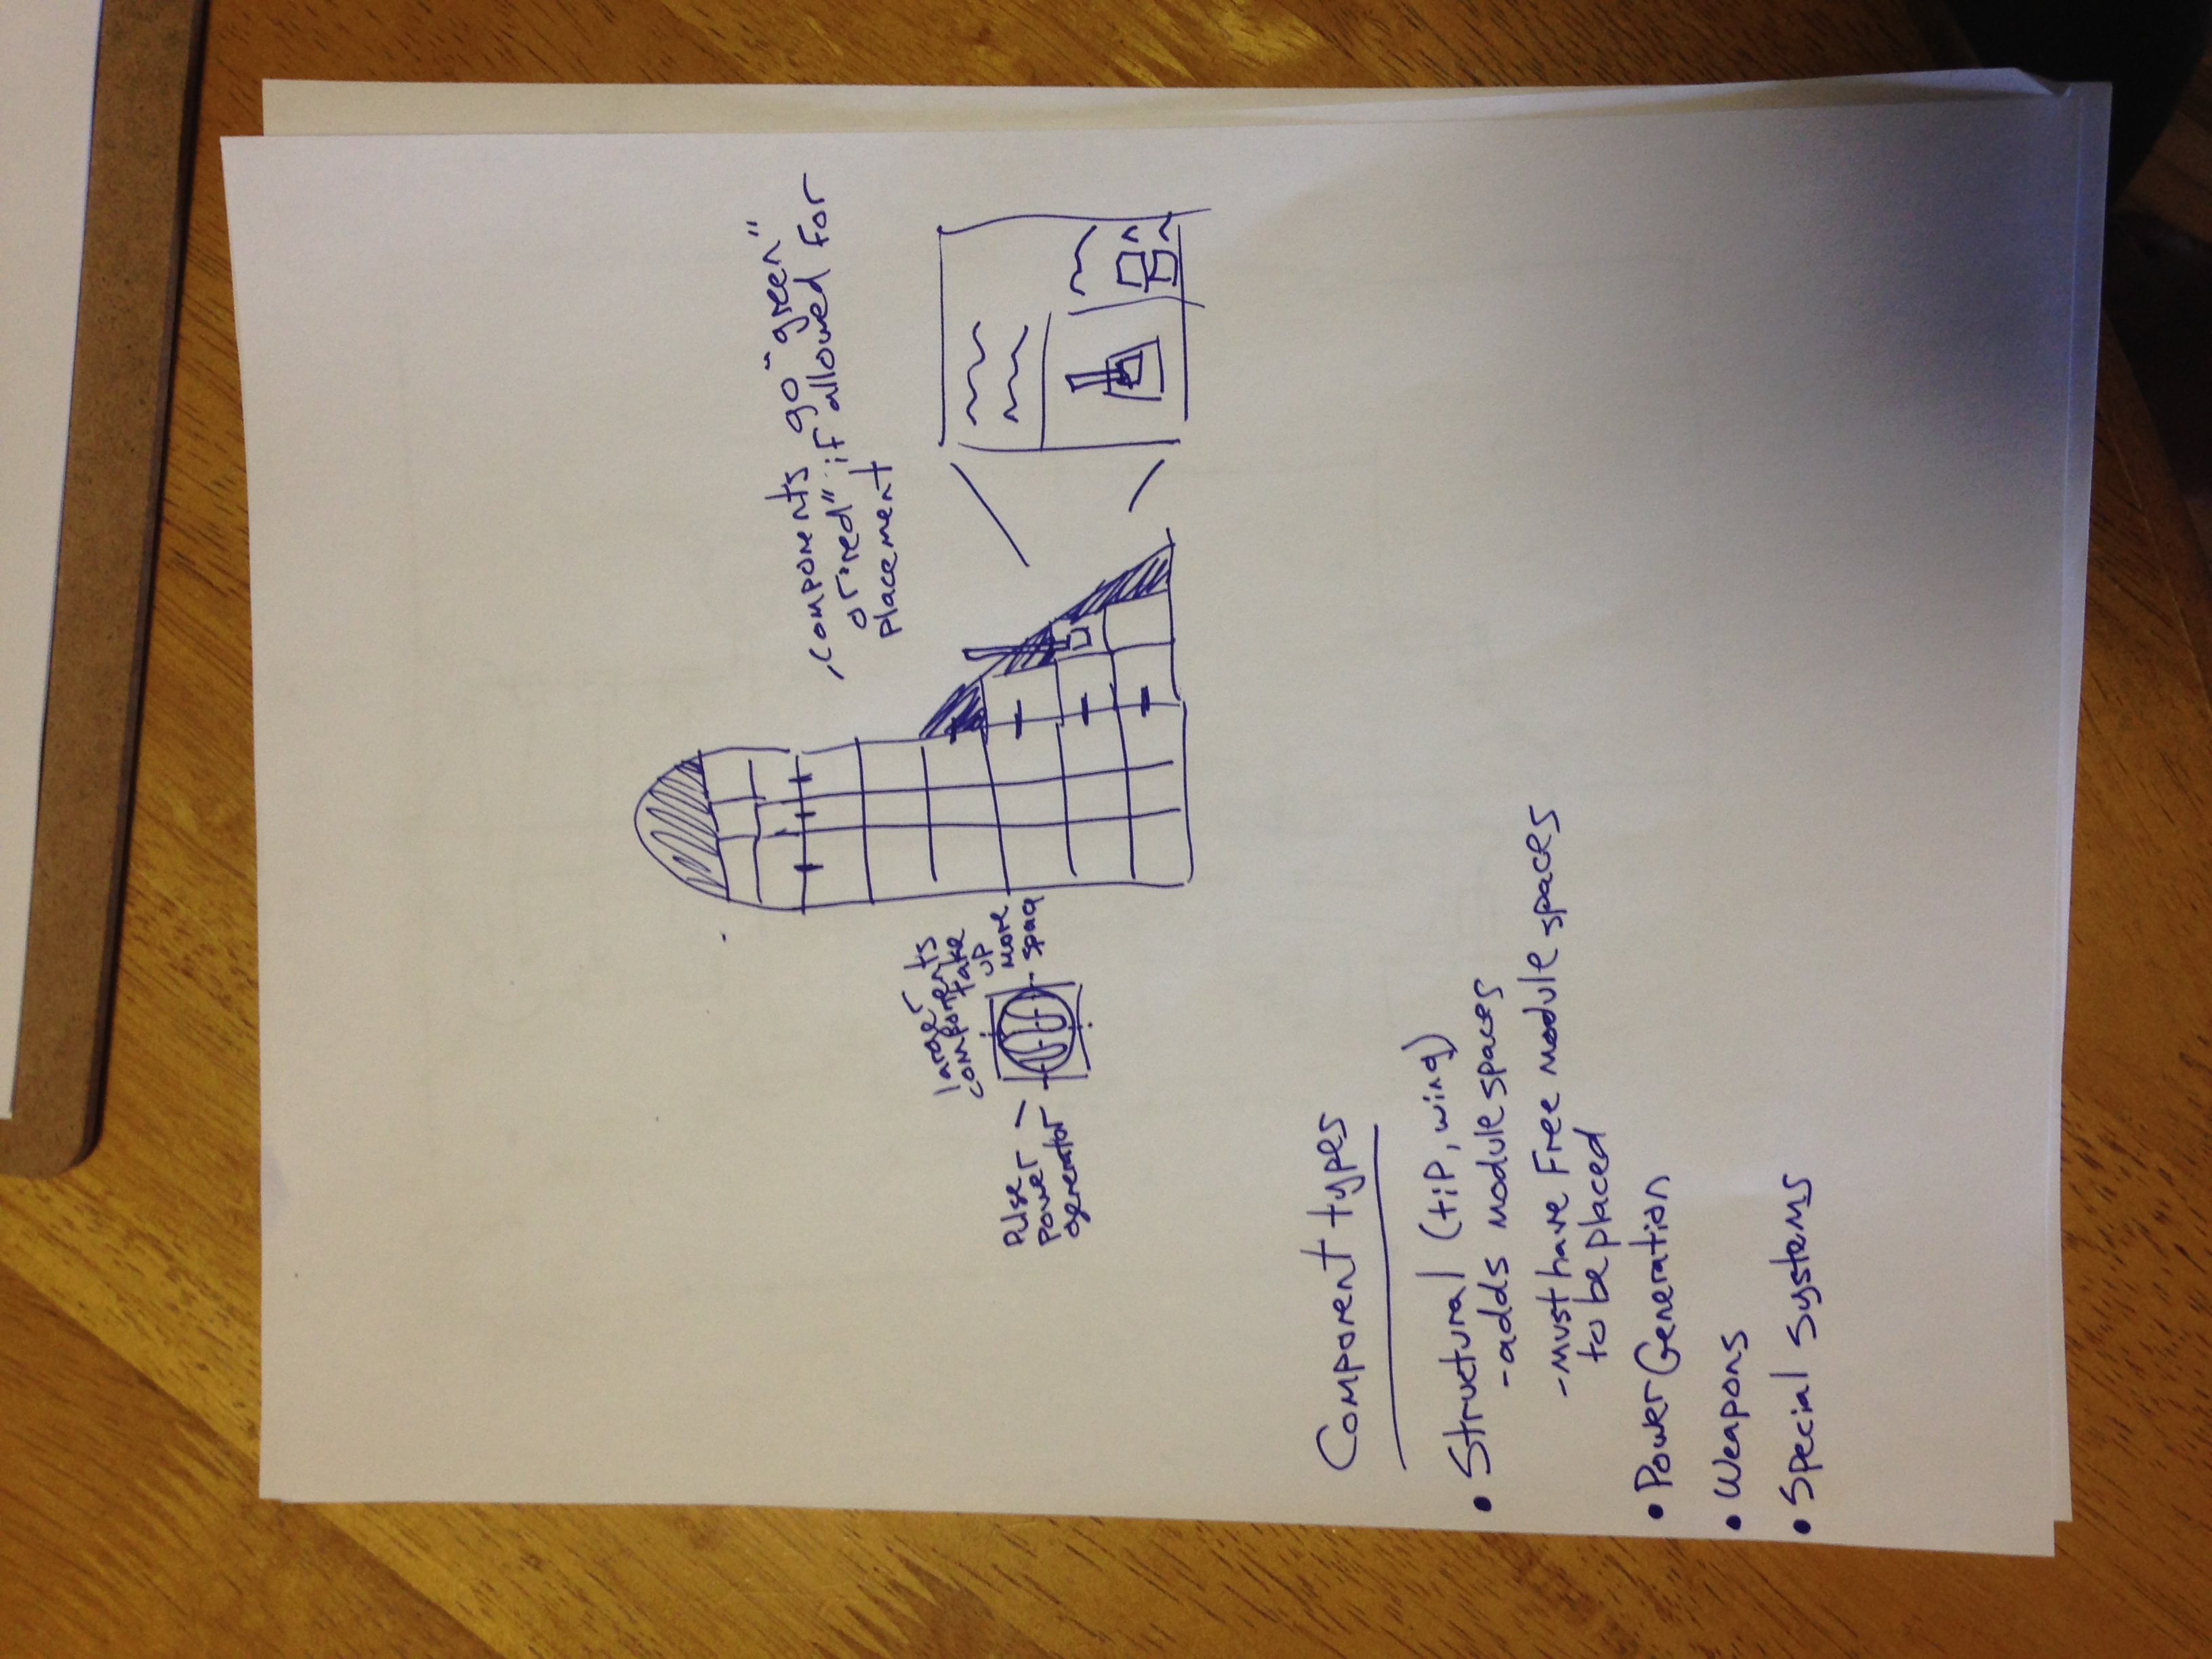 components go "green"
or "red" if allowed for
placement
larger
components
take
up
more
spac
Pulse
Power
generator
Component types
• Structural (tip, wing)
- adds module spaces
- must have free module spaces
to be placed
• Power Generation
• Weapons
• Special Systems